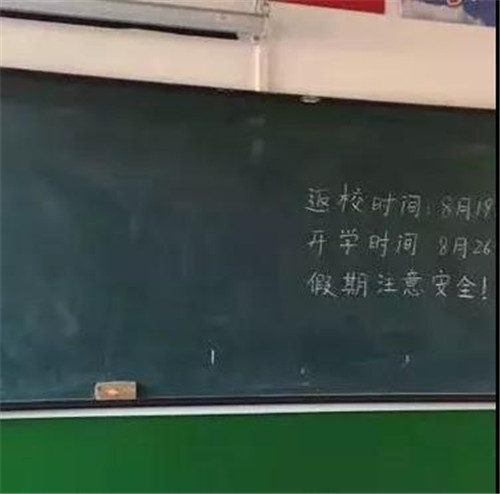 返校时间:8月18
开学时间 8月26
假期注意安全!